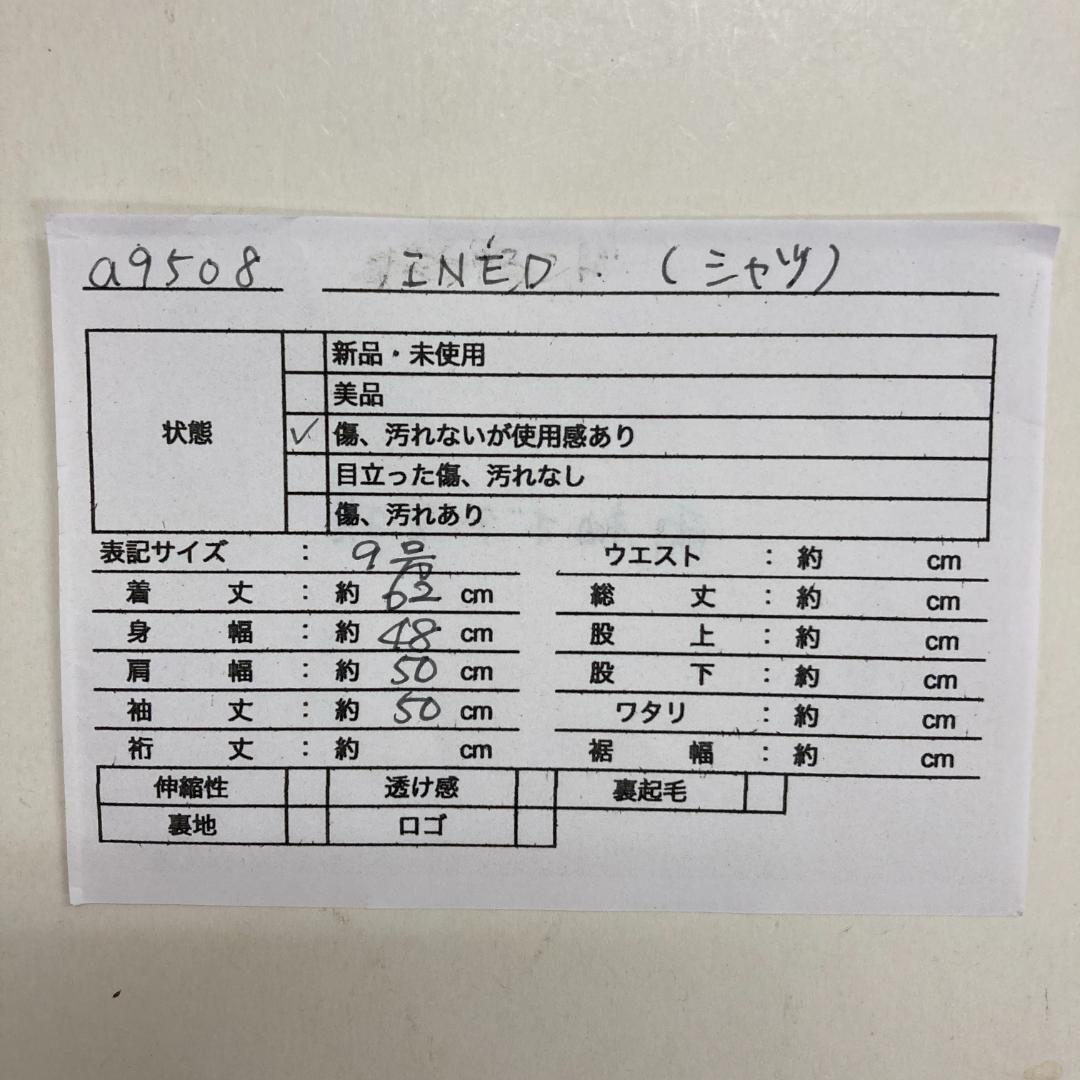 a9508 INÉD (シャツ)
状態
新品・未使用
美品
✓ 傷、汚れないが使用感あり
目立った傷、汚れなし
傷、汚れあり
表記サイズ : 9号 ウエスト : 約 cm
着丈 : 約 62 cm 総丈 : 約 cm
身幅 : 約 48 cm 股上 : 約 cm
肩幅 : 約 50 cm 股下 : 約 cm
袖丈 : 約 50 cm ワタリ : 約 cm
裄丈 : 約 cm 裾幅 : 約 cm
伸縮性 透け感 裏起毛
裏地 ロゴ